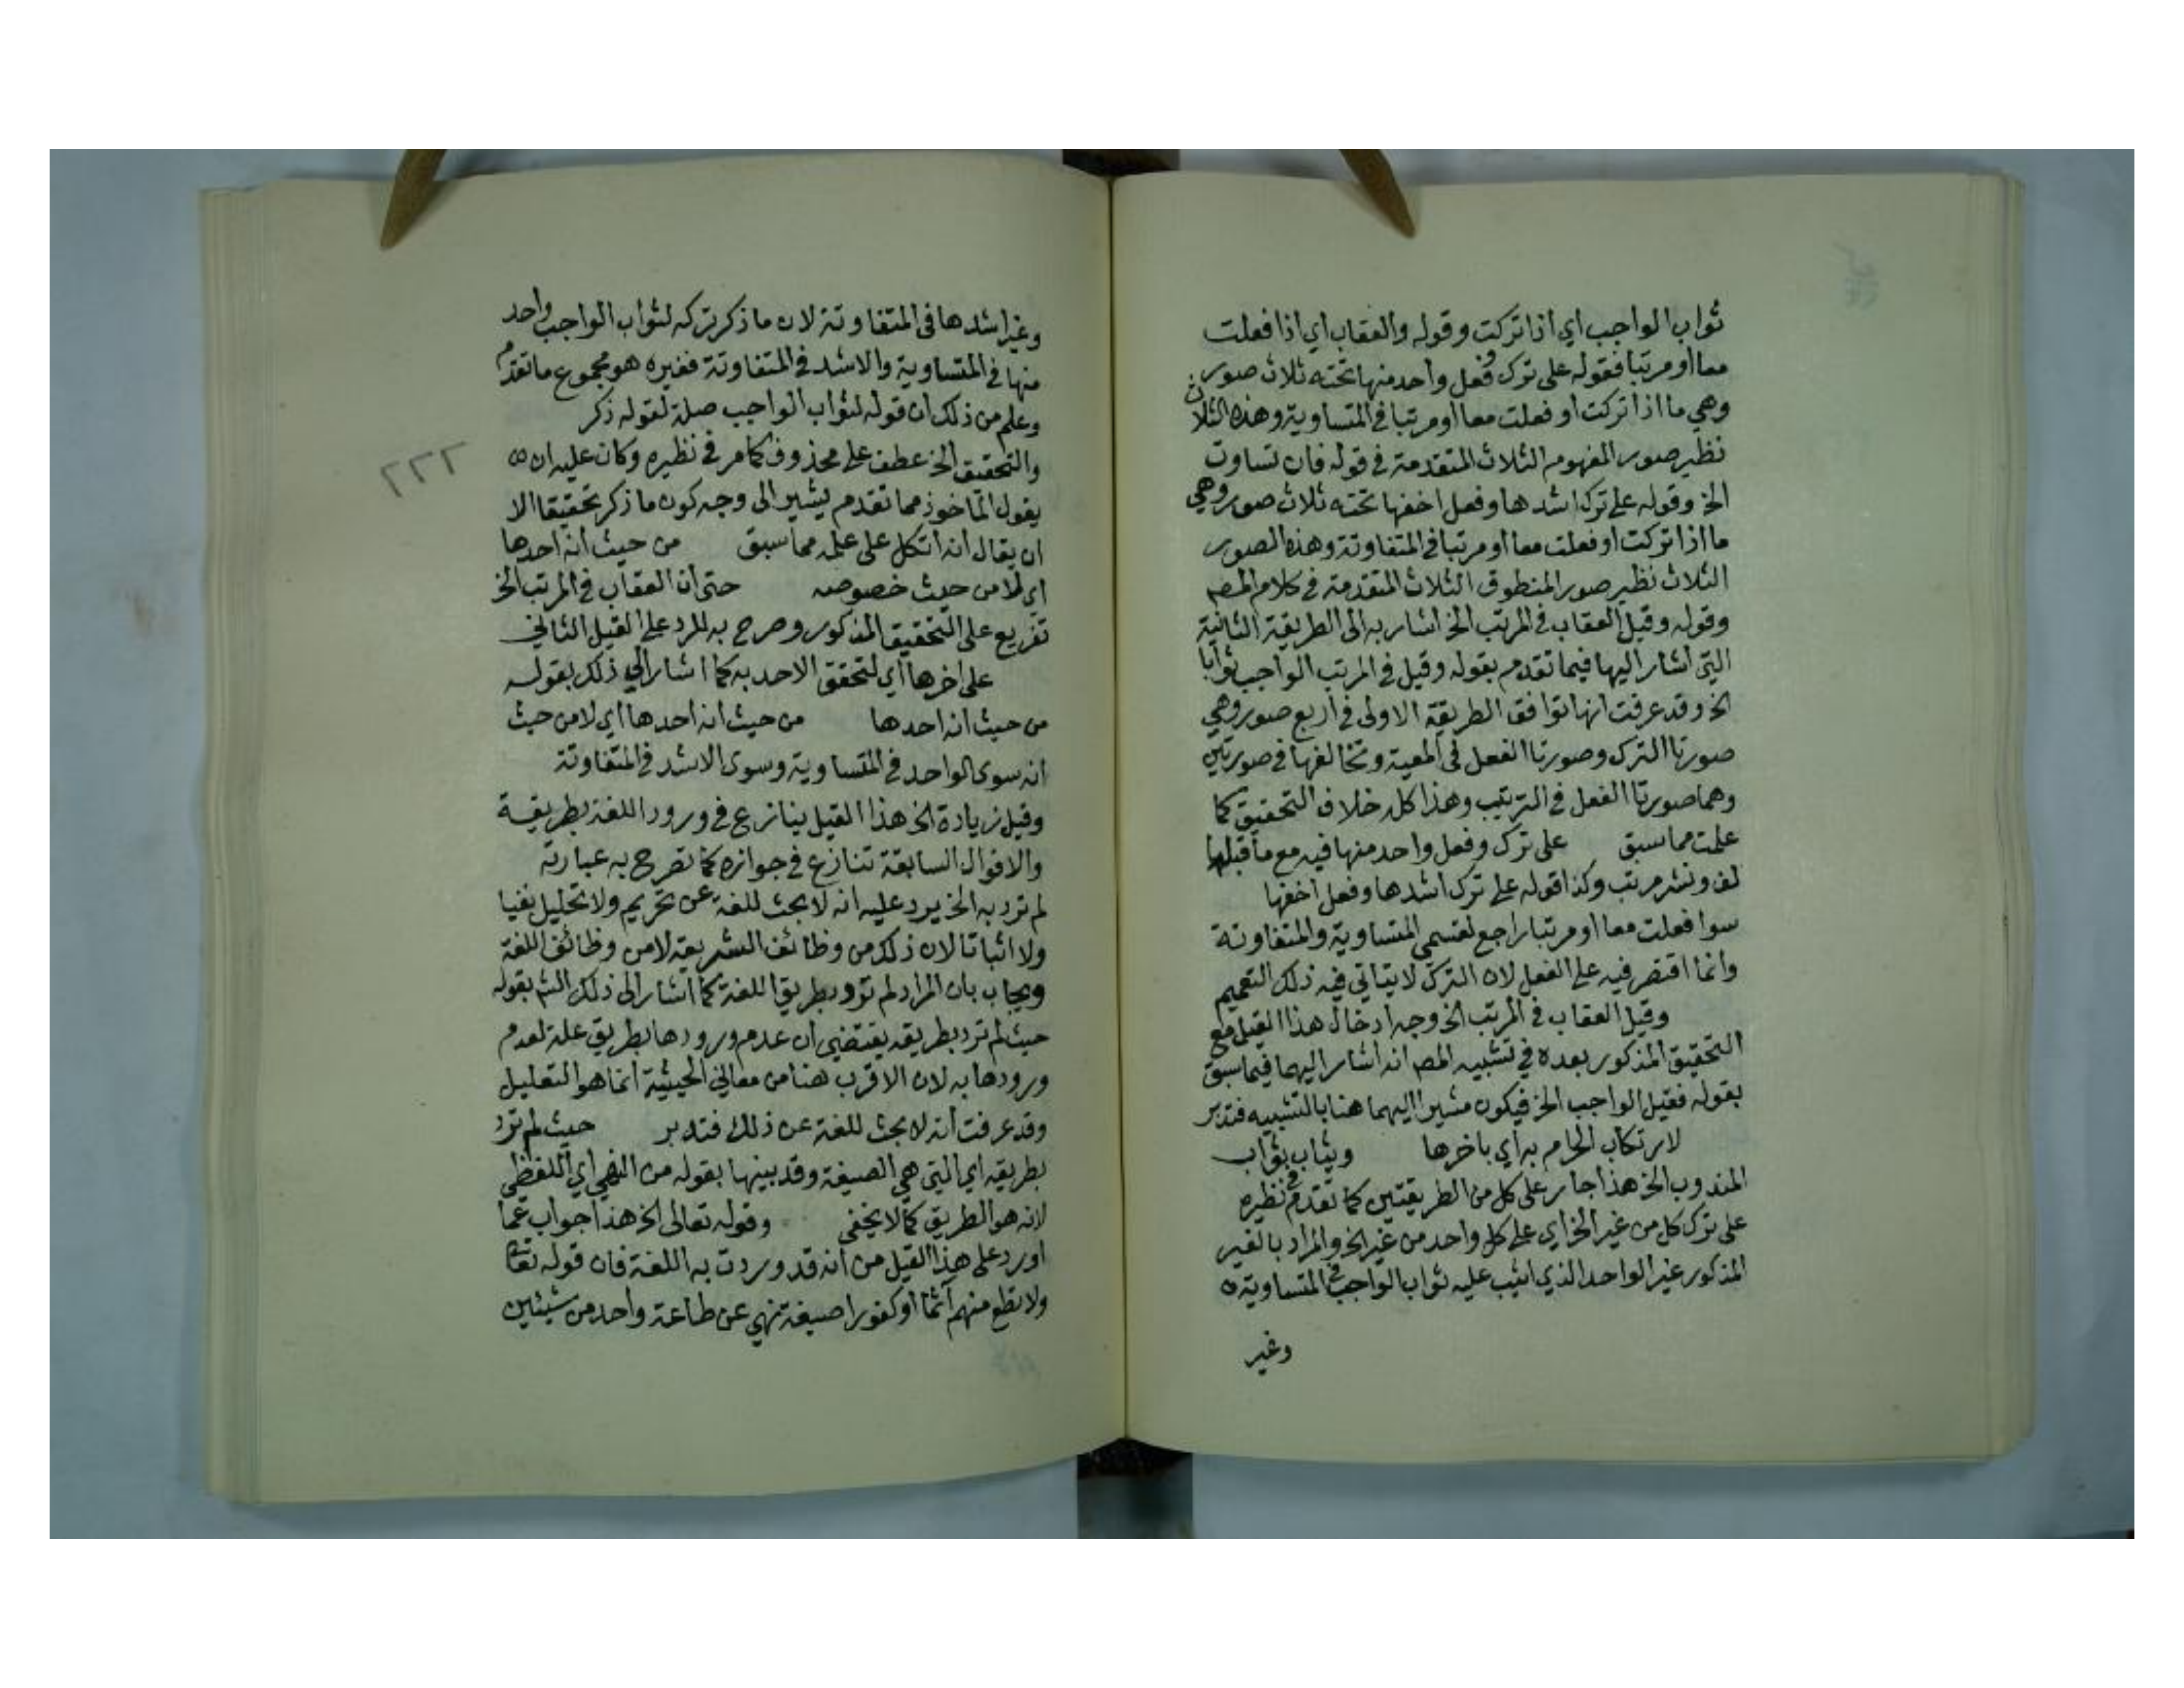 ثواب الواجب اي اذا تركت وقوله والعقاب اي اذا فعلت
معا او مرتبا فقوله على ترك وفعل واحد منها تحته ثلاث صور
وهي ما اذا تركت او فعلت معا او مرتبا في المتساوية وهذه الثلاث
نظير صور المفهوم الثلاث المتقدمة في قوله فان تساوت
الخ وقوله على ترك اشدها وفعل اخفها تحته ثلاث صور وهي
ما اذا تركت او فعلت معا او مرتبا في المتفاوتة وهذه الصور
الثلاث نظير صور المنطوق الثلاث المتقدمة في كلام المص
وقوله وقيل العقاب في المرتب الخ اشار به الى الطريقة الثانية
التي اشار اليها فيما تقدم بقوله وقيل في المرتب الواجب ثوابا
الخ وقد عرفت انها توافق الطريقة الاولى في اربع صور وهي
صورتا الترك وصورتا الفعل في المعية وتخالفها في صورتين
وهما صورتا الفعل في الترتيب وهذا كله خلاف التحقيق كما
علمت مما سبق على ترك وفعل واحد منها فيه مع ما قبلها
لف ونشر مرتب وكذا قوله على ترك اشدها وفعل اخفها
سوا فعلت معا او مرتبا راجع لقسمي المتساوية والمتفاوتة
وانما اقتصر فيه على الفعل لان الترك لا يتاتي فيه ذلك التعميم
وقيل العقاب في المرتب الخ وجه ادخال هذا القيل مع
التحقيق المذكور بعده في تشبيه المص انه اشار اليهما فيما سبق
بقوله فقيل الواجب الخ فيكون مشيرا اليهما هنا بالتشبيه فتدبر
لارتكاب الحرام به اي باخرها ويثاب ثواب
المندوب الخ هذا جار على كل من الطريقتين كما تقدم في نظيره
على ترك كل من غير الخ اي على كل واحد من غير الخ والمراد بالغير
المذكور غير الواحد الذي اثيب عليه ثواب الواجب في المتساوية
وغير
وغير اشدها في المتفاوتة لان ما ذكر تركه لثواب الواجب واحد
منها في المتساوية والاشد في المتفاوتة فغيره هو مجموع ما تقدم
وعلم من ذلك ان قوله لثواب الواجب صلة لقوله ذكر
والتحقيق الخ عطف على محذوف كما مر في نظيره وكان عليه ان
يقول الماخوذ مما تقدم ليشير الى وجه كون ما ذكر تحقيقا الا
ان يقال انه اتكل على علمه مما سبق من حيث انه احدها
اي لا من حيث خصوصه حتى ان العقاب في المرتب الخ
تفريع على التحقيق المذكور وصرح به للرد على القيل الثاني
على اخرها اي لتحقق الاحد به كما اشار الى ذلك بقوله
من حيث انه احدها من حيث انه احدها اي لا من حيث
انه سوى الواحد في المتساوية وسوى الاشد في المتفاوتة
وقيل زيادة الخ هذا القيل ينازع في ورود اللغة بطريقة
والاقوال السابقة تنازع في جوازه كما تصرح به عبارته
لم ترد به الخ يرد عليه انه لا بحث للغة عن تحريم ولا تحليل نفيا
ولا اثباتا لان ذلك من وظائف الشريعة لا من وظائف اللغة
ويجاب بان المراد لم ترد بطريق اللغة كما اشار الى ذلك الش بقوله
حيث لم ترد بطريقه يقتضي ان عدم ورودها بطريق علة لعدم
ورودها به لان الاقرب هنا من معاني الحيثية انما هو التعليل
وقد عرفت انه لا بحث للغة عن ذلك فتدبر حيث لم ترد
بطريقه اي التي هي الصيغة وقد بينها بقوله من النهي اي اللفظي
لانه هو الطريق كما لا يخفى وقوله تعالى الخ هذا جواب عما
اورد على هذا القيل من انه قد وردت به اللغة فان قوله تعا
ولا تطع منهم آثما او كفورا صيغة نهي عن طاعة واحد من شيئين
٢٢٢